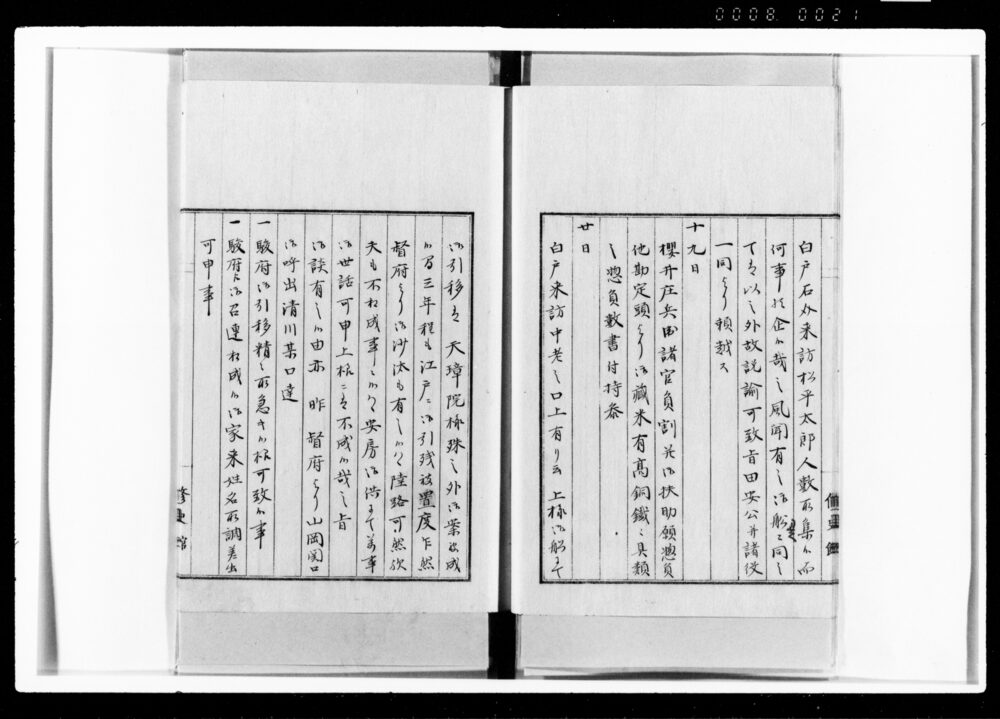 0008 0021
白戸石介来訪松平太郎人数取集候而
何事歟企候哉之風聞有之御船ニ同意之
下よ以之外故説諭可致旨田安公并諸役
一同より頼越ス
十九日
櫻井庄兵衛諸官員割并御扶助願惣員
他勘定頭より御藏米有髙銅鐵之貝類
之惣員數書付持参
廿日
白戸来訪中老之口上有り云 上様御船ニて
御引移は 天璋院様殊之外御案被成
候間三年程も江戸ニ御引残被置度乍然
督府より御沙汰も有之候得は陸路可然歟
夫も不相成事ニ候得は安房御供ニて萬事
御世話可申上様ニは不成候哉之旨
御談有之候由亦 昨 督府より山岡関口
御呼出清川某口達
一駿府御引移精々取急キ候様可致候事
一駿府に御召連相成候御家来姓名取調差出
可申事
修史館
修史館